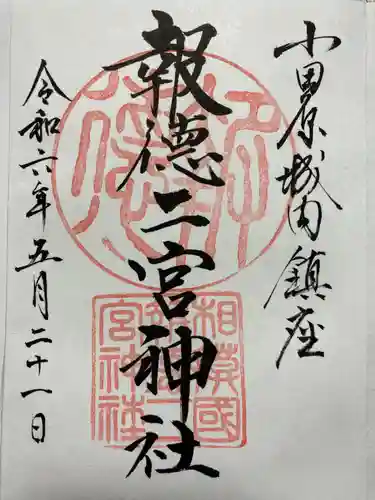 小田原城内鎮座
報徳二宮神社
令和六年五月二十一日
相模國
報徳二
宮神社